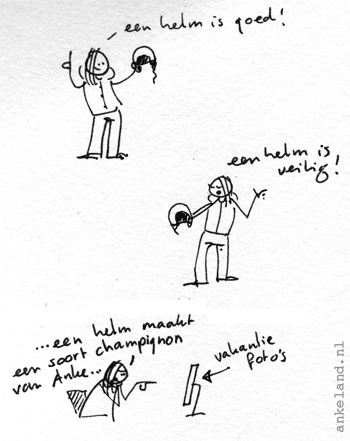 een helm is goed!
een helm is
veilig!
...een helm maakt
een soort champignon
van Anke...
vakantie
foto's
ankeland.nl